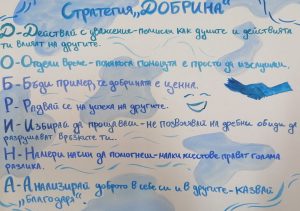 Стратегия „ДОБРИНА"
Д-Действай с уважение-помисли как думите и действията
ти влияят на другите.
О-Отдели време-понякога помощта е просто да изслушаш.
Б-Бъди пример, че добрината е ценна.
Р-Радвай се на успеха на другите.
И-Избирай да прощаваш-не позволявай на дребни обиди да
разрушават връзките ти.
Н-Намери начин да помогнеш-малки жестове правят голяма
разлика.
А-Анализирай доброто в себе си и в другите-казвай
„благодаря".